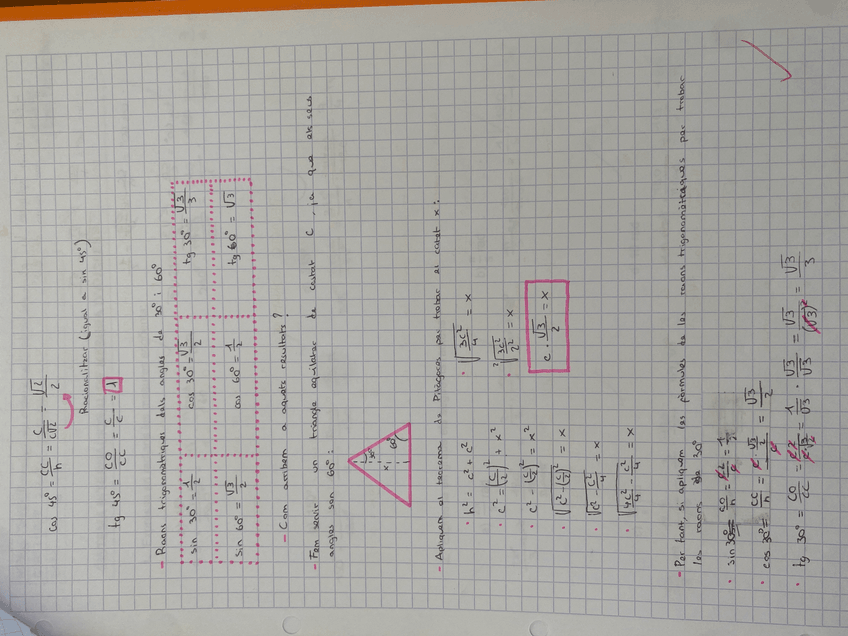 cos 45º = CC/h = C/C√2 = √2/2
Racionalitzar (igual a sin 45º)
tg 45º = CO/CC = C/C = 1
- Raons trigonomètriques dels angles de 30º i 60º
sin 30º = 1/2 cos 30º = √3/2 tg 30º = √3/3
sin 60º = √3/2 cos 60º = 1/2 tg 60º = √3
- Com arribem a aquests resultats?
- Fem servir un triangle equilàter de costat C, ja que els seus
angles són 60º:
30º
x
60º
- Apliquem el teorema de Pitàgores per trobar el catet x:
· h² = c² + c²
· c² = (c/2)² + x²
· c² - (c/2)² = x²
· √(c² - (c/2)²) = x
· √(c² - c²/4) = x
· √(4c²/4 - c²/4) = x
· √(3c²/4) = x
· ²√(3c²/2²) = x
c · √3/2 = x
- Per tant, si apliquem les fórmules de les raons trigonomètriques per trobar
les raons de 30º
· sin 30º = CO/h = = 1/2
· cos 30º = CC/h = = √3/2
· tg 30º = CO/CC = = 1/√3 · √3/√3 = √3/(√3)² = √3/3